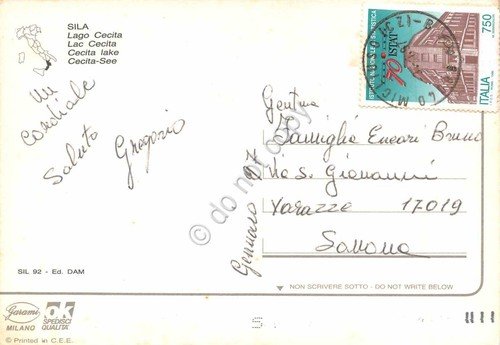 SILA
Lago Cecita
Lac Cecita
Cecita lake
Cecita-See
Un
Cordiale
Saluto
Gregorio
ISTITUTO NAZIONALE DI STATISTICA
750
ITALIA
Gennaro 97
Gent.ma
Famiglia Encari Bruno
Via S. Giovanni
Varazze 17019
Savona
do not copy
SIL 92 - Ed. DAM
NON SCRIVERE SOTTO - DO NOT WRITE BELOW
Garami
MILANO
OK
SPEDISCI
QUALITA'
© Printed in C.E.E.